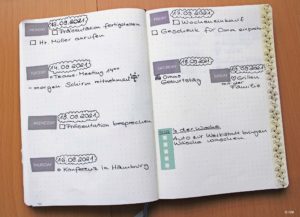 MONDAY
13.09.2021
□ Präsentation fertigstellen
□ Hr. Müller anrufen
TUESDAY
14.09.2021
Teams Meeting 14⁰⁰
- morgen Schirm mitnehmen!
WEDNESDAY
15.09.2021
□ Präsentation besprechen
THURSDAY
16.09.2021
Konferenz in Hamburg
FRIDAY
17.09.2021
□ Wocheneinkauf
□ Geschenk für Oma
SATURDAY
18.09.2021
Omas
Geburtstag
SUNDAY
19.09.2021
Grillen
Familie
der Woche
Auto zur Werkstatt bringen
Wäsche waschen